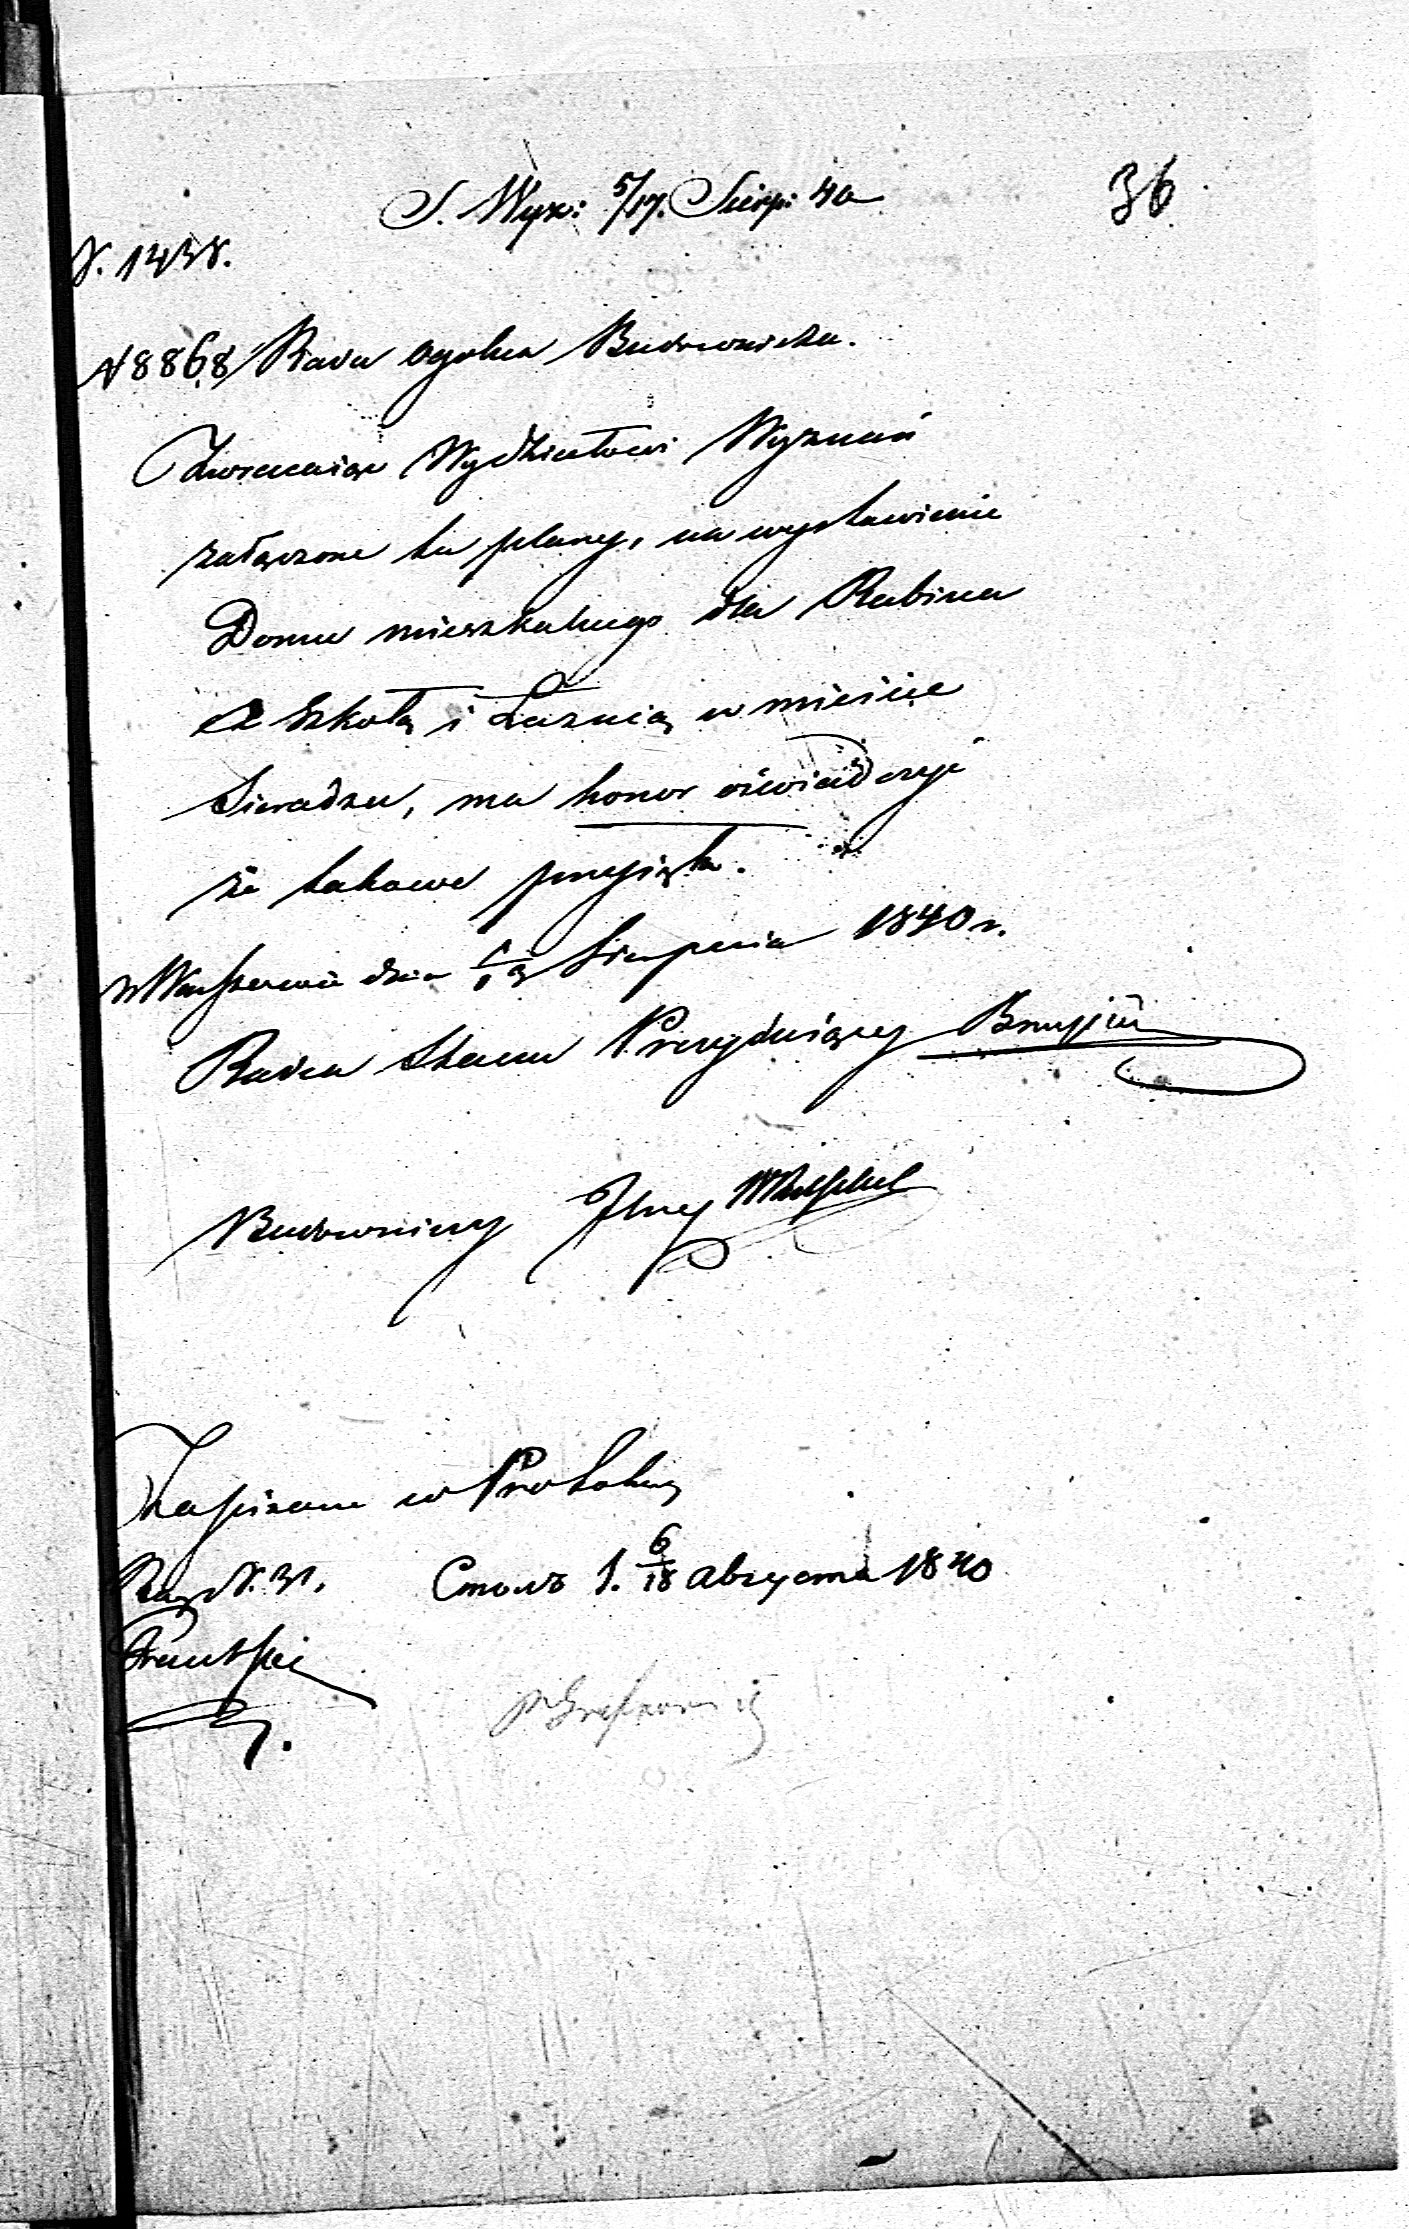 36
S. Wyzn: 5/17. Sierp: 40
N. 1438.
N 8868 Rada Ogólna Budownicza.
Zwracaiąc Wydziałowi Wyznań
załączone tu plany, na wystawienie
Domu mieszkalnego dla Rabina
ze Szkołą i Łaznią w mieście
Sieradzu, ma honor oświadczyć
że takowe przyięła.
w Warszawie dnia Sierpnia 1840 r.
Radca Stanu Prezyduiący
Budowniczy
Zapisane w Protokuł
Rady N. 31. 6/18 Августа 1840